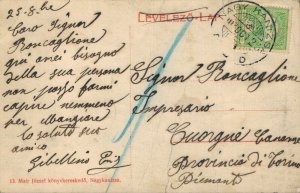 25-8-
LEVELEZŐ-LAP
NAGYKANIZSA
Caro Signor
Roncaglione
qui anei bisogno
della sua persona
non posso farmi
capire nemmeno
per Mangiare
lo saluto suo
amico
Gibellino
Signor Roncaglione
Impresario
Cuorgnè Canavese
Provincia di Torino
Piemont
13. Mair József könyvkereskedő, Nagykanizsa.